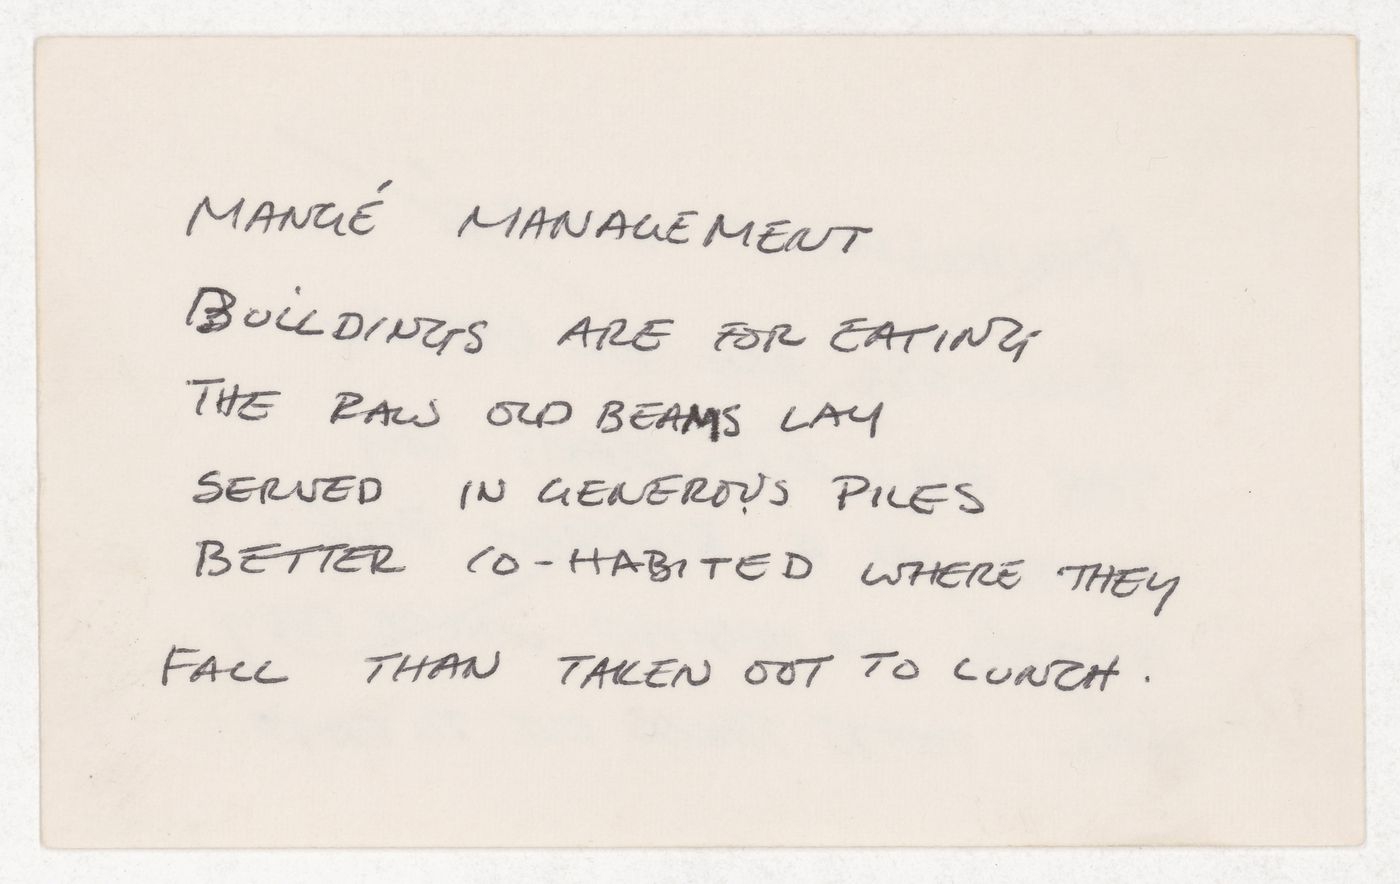 MANGÉ MANAGEMENT
BUILDINGS ARE FOR EATING
THE RAW OLD BEAMS LAY
SERVED IN GENEROUS PILES
BETTER CO-HABITED WHERE THEY
FALL THAN TAKEN OUT TO LUNCH.